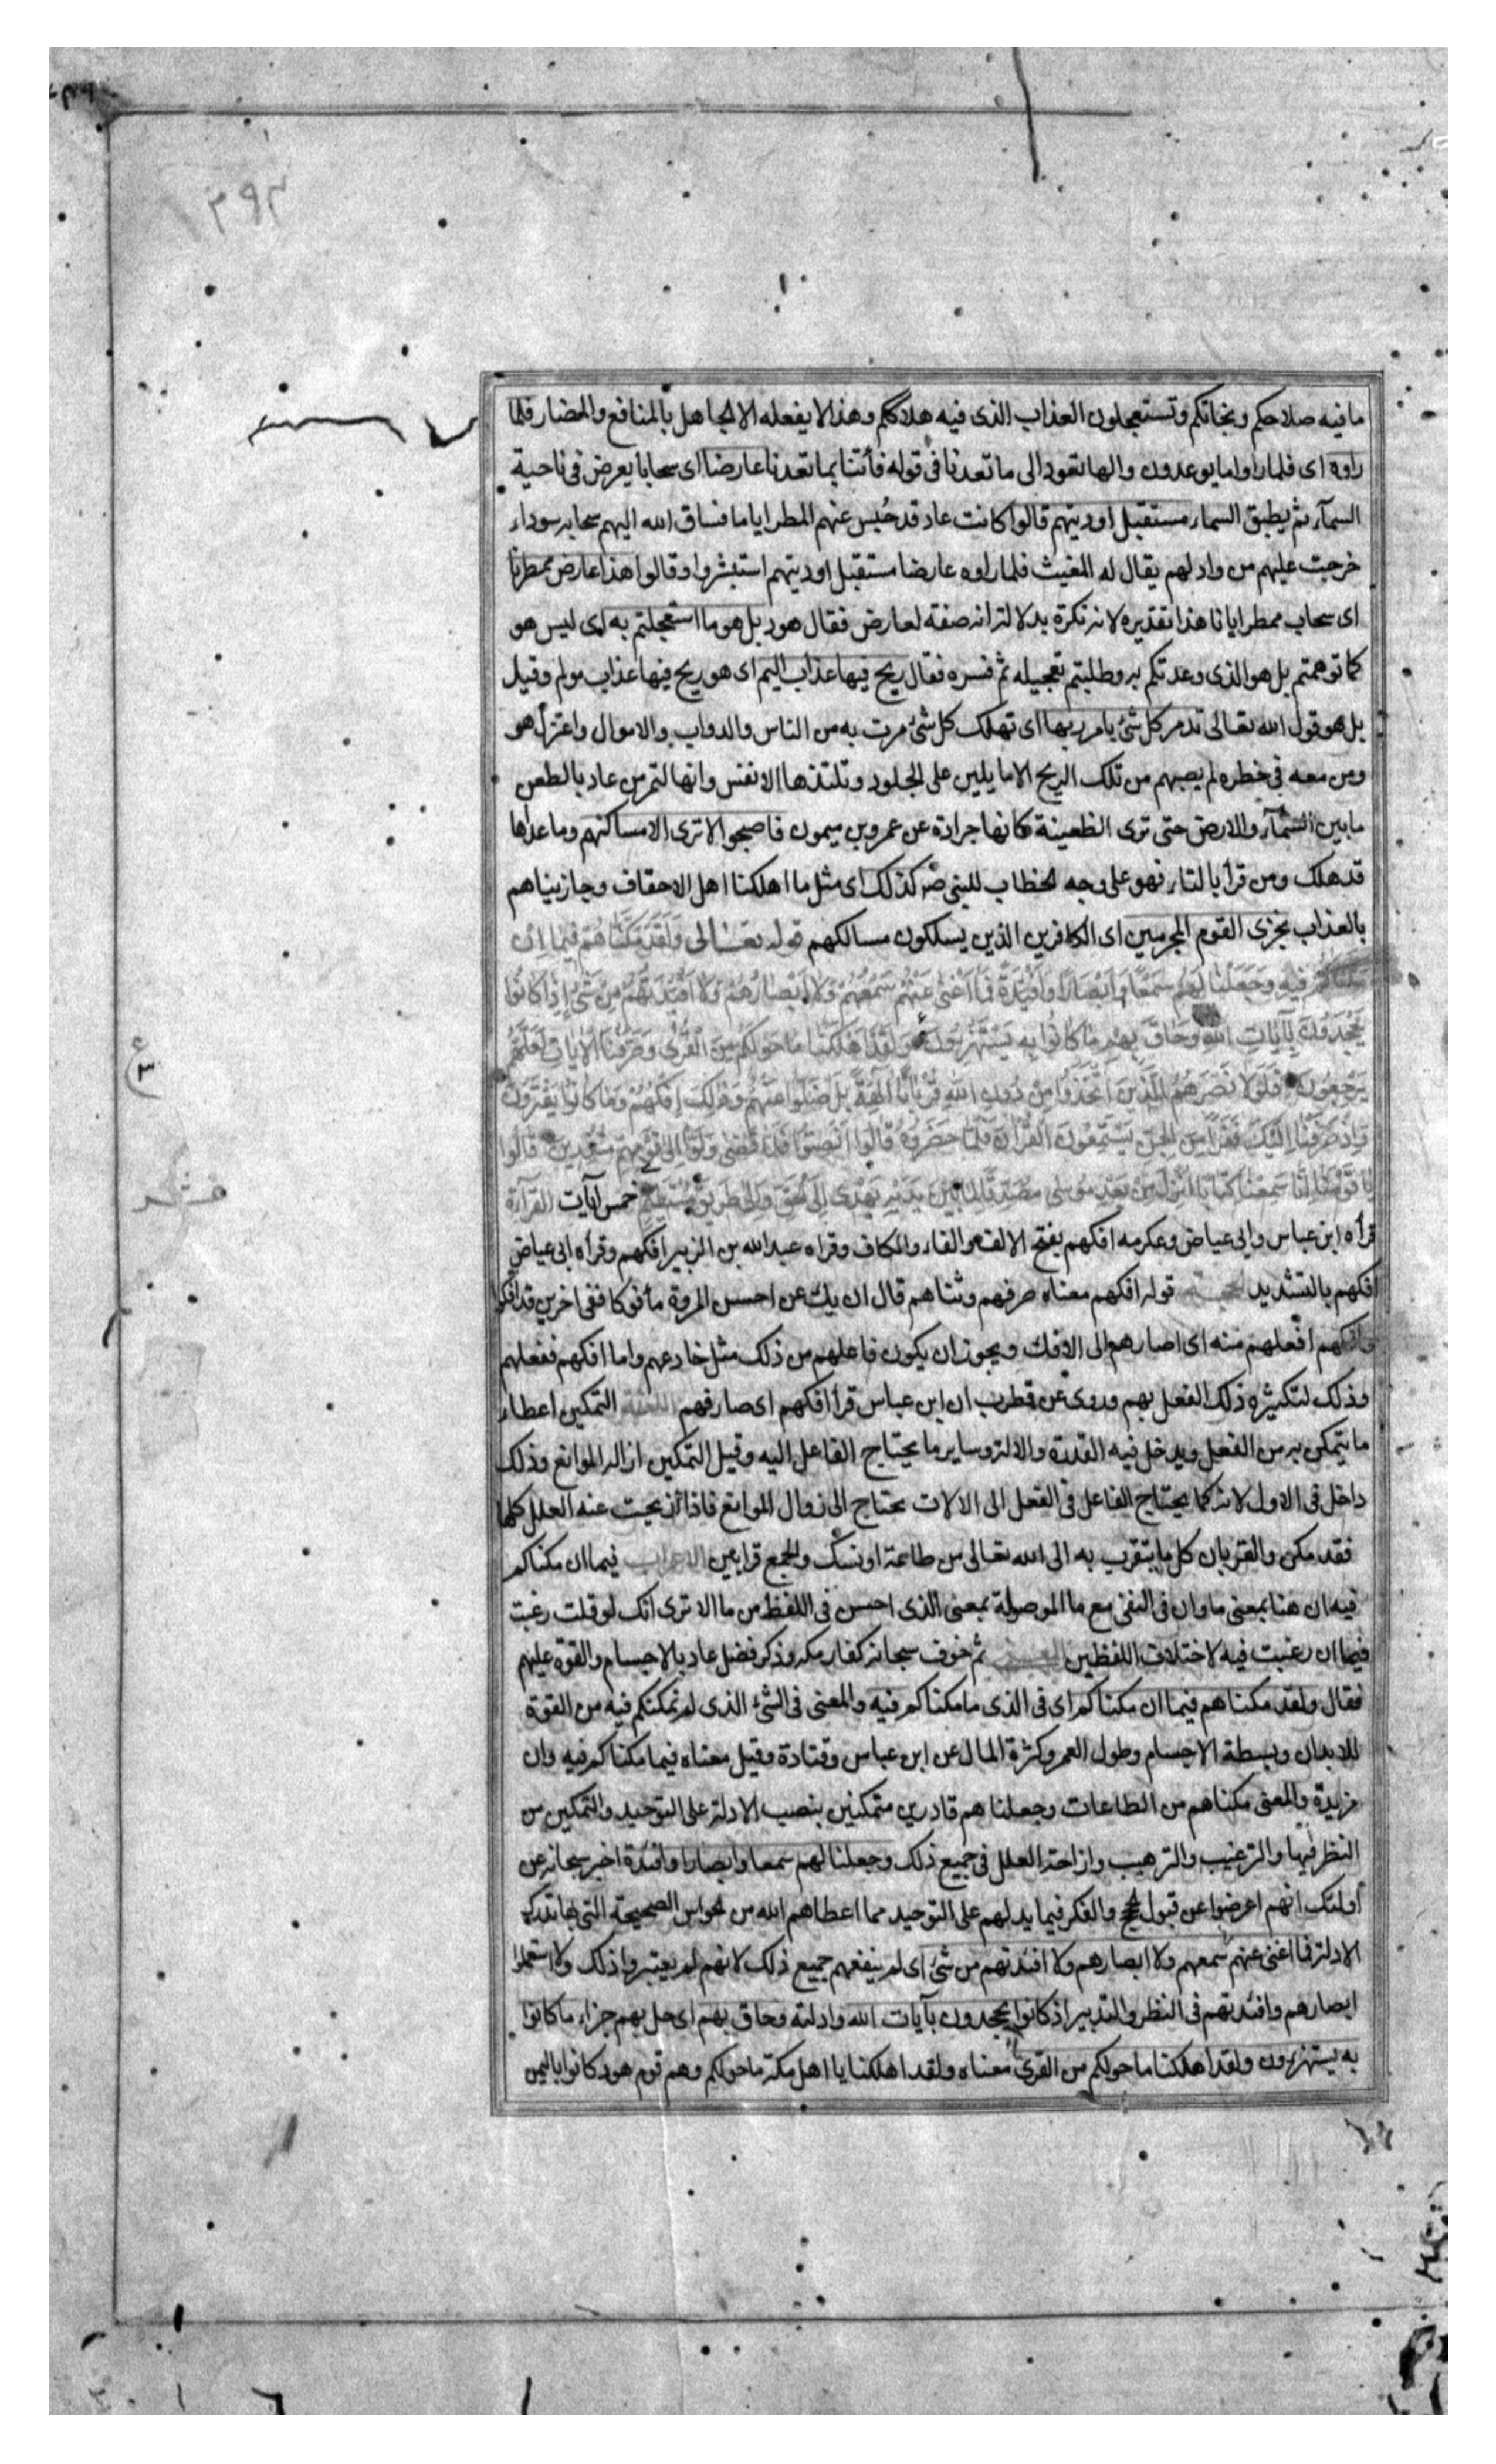 ٢٩٢
ما فيه صلاحكم ونجاتكم وتستعجلون العذاب الذى فيه هلاككم وهذا لا يفعله الا الجاهل بالمنافع والمضار فلما
راوه اى فلما راوا ما يوعدون والها تعود الى ما تعدنا فى قوله فأتنا بما تعدنا عارضا اى سحابا يعرض فى ناحية
السمآء ثم يطبق السماء مستقبل اوديتهم قالوا كانت عاد قد حُبس عنهم المطر اياما فساق الله اليهم سحابه سوداء
خرجت عليهم من واد لهم يقال له المغيث فلما راوه عارضا مستقبل اوديتهم استبشروا وقالوا هذا عارض ممطرنا
اى سحاب ممطر ايانا هذا تقديره لانه نكرة بدلالة انه صفة لعارض فقال هود بل هو ما استعجلتم به اى ليس هو
كما توهمتم بل هو الذى وعدتكم به وطلبتم تعجيله ثم فسره فقال ريح فيها عذاب اليم اى هو ريح فيها عذاب مولم وقيل
بل هو قول الله تعالى تدمر كل شئ بامر ربها اى تهلك كل شئ مرت به من الناس والدواب والاموال واعتزل هو
ومن معه فى خطره لم يصبهم من تلك الريح الا ما يلين على الجلود وتلتذها الانفس وانها لتمر من عاد بالطعن
ما بين السمآء والارض حتى ترى الظعينة كانها جرادة عن عمرو بن ميمون فاصبحوا لا ترى الا مساكنهم وما عداها
قد هلك ومن قرأ بالتاء فهو على وجه الخطاب للنبى ص كذلك اى مثل ما اهلكنا اهل الاحقاف وجازيناهم
بالعذاب نجزى القوم المجرمين اى الكافرين الذين يسلكون مسالكهم قوله تعالى وَلَقَدْ مَكَّنَّاهُمْ فِيمَا اِنْ
مَكَّنَّاكُمْ فِيهِ وَجَعَلْنَا لَهُمْ سَمْعًا وَاَبْصَارًا وَاَفْئِدَةً فَمَا اَغْنَى عَنْهُمْ سَمْعُهُمْ وَلَا اَبْصَارُهُمْ وَلَا اَفْئِدَتُهُمْ مِنْ شَىْءٍ اِذْ كَانُوا
يَجْحَدُونَ بِآيَاتِ اللهِ وَحَاقَ بِهِمْ مَا كَانُوا بِهِ يَسْتَهْزِؤُنَ وَلَقَدْ اَهْلَكْنَا مَا حَوْلَكُمْ مِنَ الْقُرَى وَصَرَّفْنَا الْآيَاتِ لَعَلَّهُمْ
يَرْجِعُونَ فَلَوْلَا نَصَرَهُمُ الَّذِينَ اتَّخَذُوا مِنْ دُونِ اللهِ قُرْبَانًا آلِهَةً بَلْ ضَلُّوا عَنْهُمْ وَذَلِكَ اِفْكُهُمْ وَمَا كَانُوا يَفْتَرُونَ
وَاِذْ صَرَفْنَا اِلَيْكَ نَفَرًا مِنَ الْجِنِّ يَسْتَمِعُونَ الْقُرْآنَ فَلَمَّا حَضَرُوهُ قَالُوا اَنْصِتُوا فَلَمَّا قُضِىَ وَلَّوْا اِلَى قَوْمِهِمْ مُنْذِرِينَ قَالُوا
يَا قَوْمَنَا اِنَّا سَمِعْنَا كِتَابًا اُنْزِلَ مِنْ بَعْدِ مُوسَى مُصَدِّقًا لِمَا بَيْنَ يَدَيْهِ يَهْدِى اِلَى الْحَقِّ وَاِلَى طَرِيقٍ مُسْتَقِيمٍ خمس آيات القرآءة
قرأه ابن عباس وابى عياض وعكرمه افكهم بفتح الالف والفاء والكاف وقراه عبد الله بن الزبير افكهم وقرأه ابى عياض
افكهم بالتشديد الحجة قوله افكهم معناه صرفهم وثناهم قال ان يك عن احسن المروة مأفوكا ففى اخرين قد افكوا
وافكهم افعلهم منه اى اصارهم الى الافك ويجوز ان يكون فاعلهم من ذلك مثل خادعهم واما افكهم ففعلهم
وذلك لتكثيره ذلك الفعل بهم وروى عن قطرب ان ابن عباس قرأ افكهم اى صارفهم اللغة التمكين اعطاء
ما يتمكن به من الفعل ويدخل فيه القدرة والالة وساير ما يحتاج الفاعل اليه وقيل التمكين ازالة الموانع وذلك
داخل فى الاول لانه كما يحتاج الفاعل فى الفعل الى الالات يحتاج الى زوال الموانع فاذا انزيحت عنه العلل كلها
فقد مكن والقربان كل ما يتقرب به الى الله تعالى من طاعة او نسك والجمع قرابين الاعراب فيما ان مكناكم
فيه ان هنا بمعنى ما وان فى النفى مع ما الموصولة بمعنى الذى احسن فى اللفظ من ما الا ترى انك لو قلت رغبت
فيما ان رغبت فيه لاختلاف اللفظين المعنى ثم خوف سبحانه كفار مكه وذكر فضل عاد بالاجسام والقوة عليهم
فقال ولقد مكناهم فيما ان مكناكم اى فى الذى ما مكناكم فيه والمعنى فى الشئ الذى لم نمكنكم فيه من القوة
للابدان وبسطة الاجسام وطول العمر وكثرة المال عن ابن عباس وقتادة وقيل معناه فيما مكناكم فيه وان
مزيدة والمعنى مكناهم من الطاعات وجعلناهم قادرين متمكنين بنصب الادلة على التوحيد والتمكين من
النظر فيها والترغيب والترهيب وازاحة العلل فى جميع ذلك وجعلنا لهم سمعا وابصارا وافئدة اخبر سبحانه عن
أولئك انهم اعرضوا عن قبول الحجج والفكر فيما يدلهم على التوحيد مما اعطاهم الله من الحواس الصحيحة التى بها تدرك
الادلة فما اغنى عنهم سمعهم ولا ابصارهم ولا افئدتهم من شئ اى لم ينفعهم جميع ذلك لانهم لم يعتبروا ذلك ولا استعملوا
ابصارهم وافئدتهم فى النظر والتدبير اذ كانوا يجحدون بآيات الله وادلته وحاق بهم اى حل بهم جزاء ما كانوا
به يستهزؤن ولقد اهلكنا ما حولكم من القرى معناه ولقد اهلكنا يا اهل مكة ما حولكم وهم قوم هود كانوا باليمن